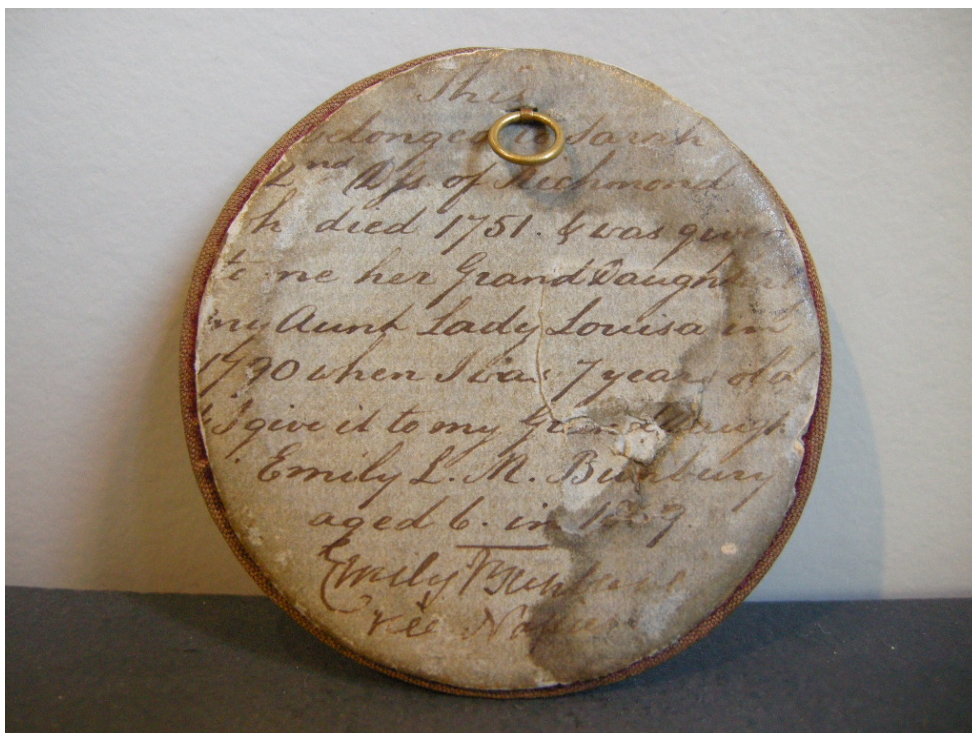 This
belonged to Sarah
2nd Dss of Richmond
wh died 1751. & was given
to me her Grand Daughter
my Aunt Lady Louisa in
1790 when I was 7 years old
& I give it to my Grand Daugh
Emily L. M. Bunbury
aged 6. in
Emily Bunbury
née Napier